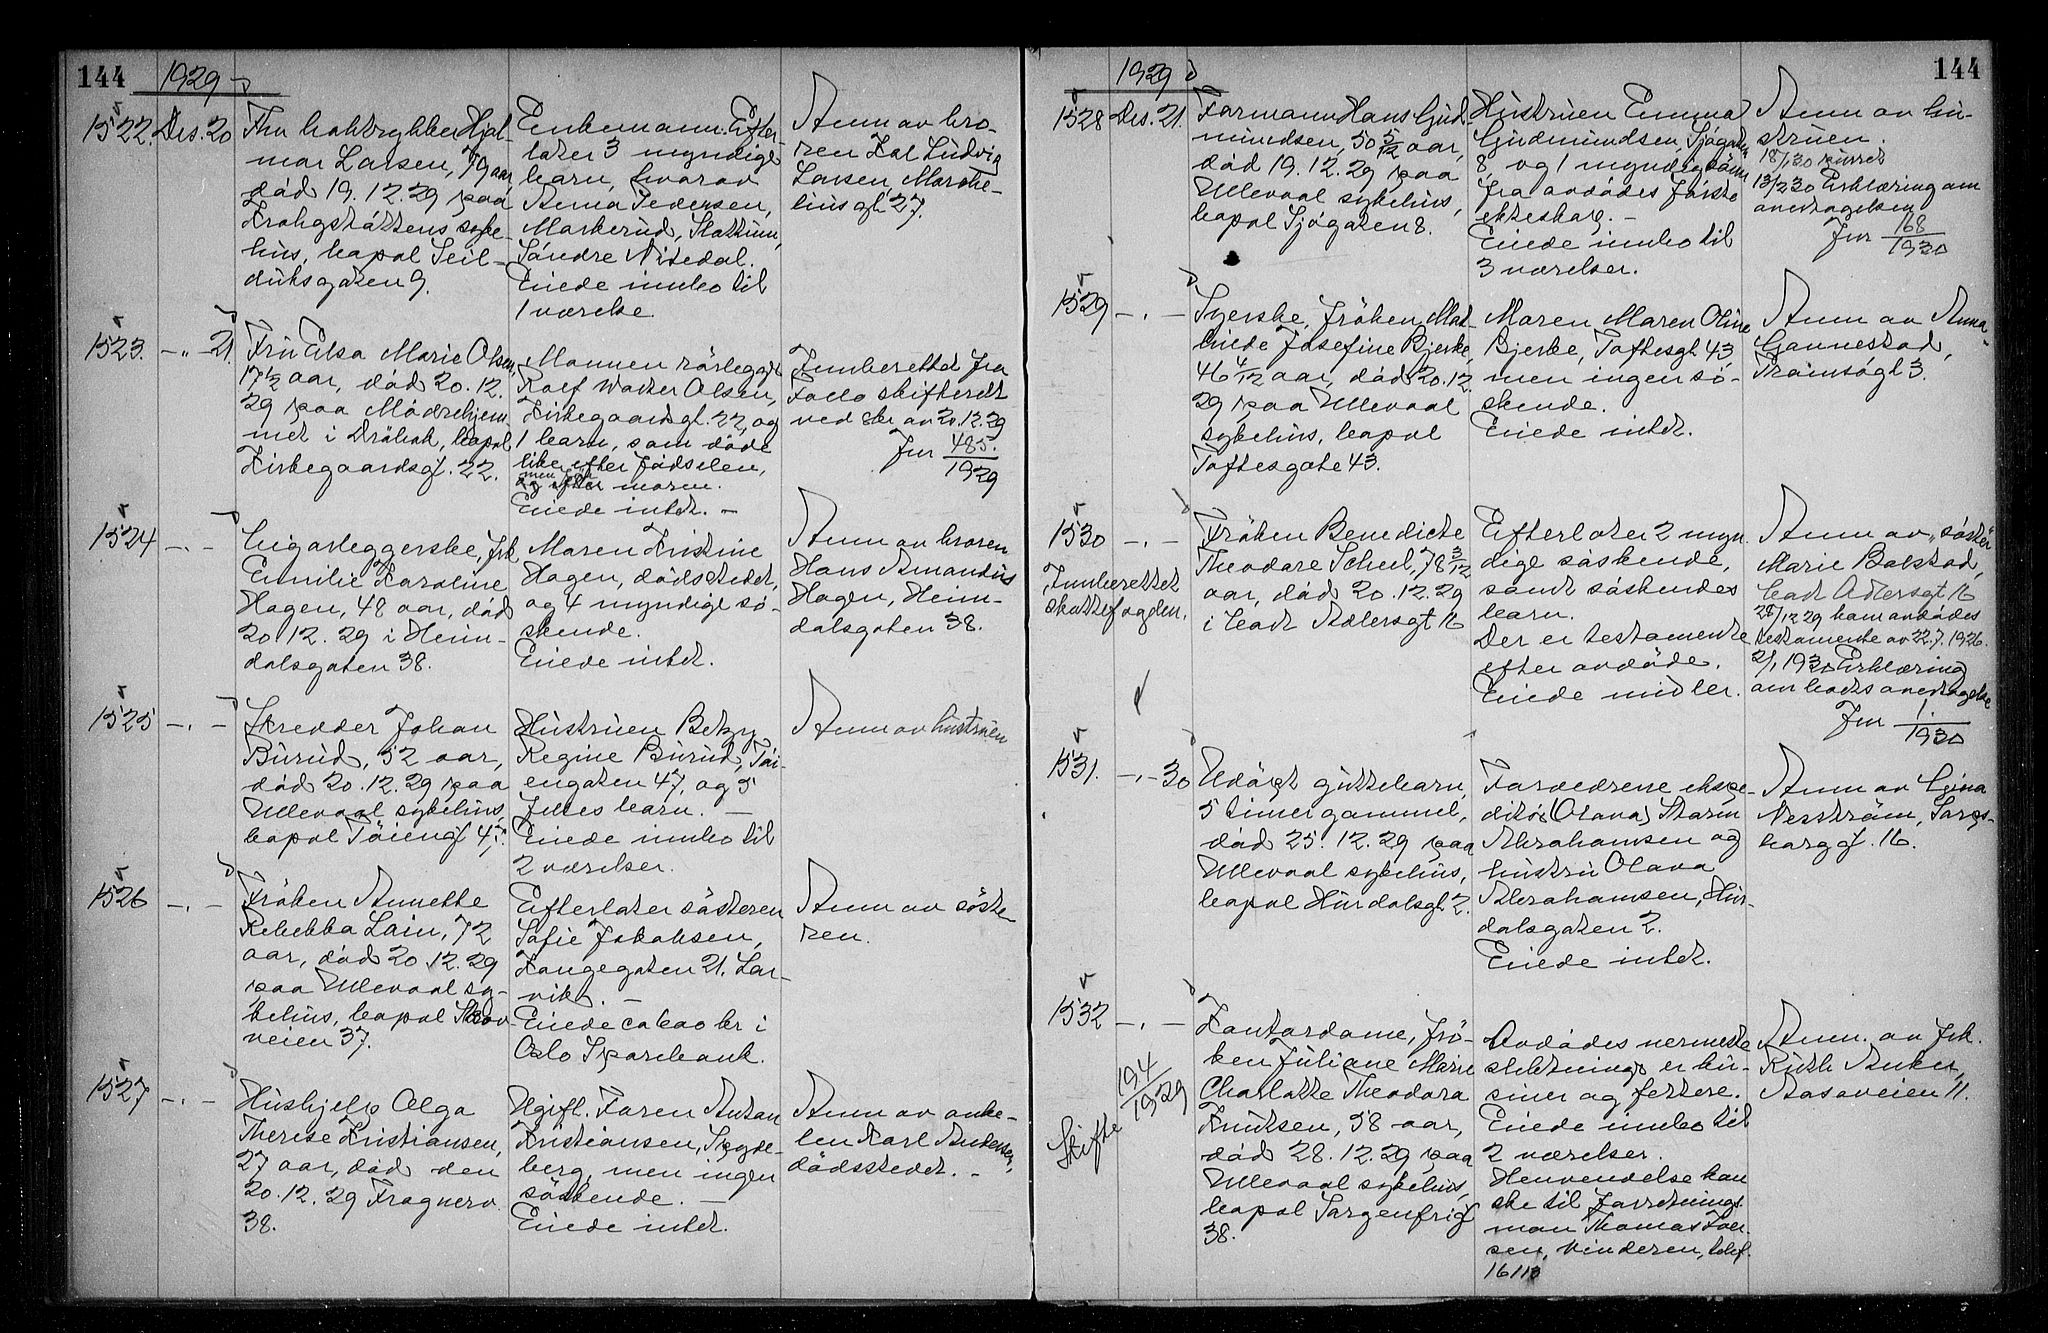 144 1929
1522. Des. 20
Fhv kobtrykker Hjal-
mar Larsen, 79 aar,
död 19.12.29 paa
Krohgstöttens syke-
hus, bopæl Seil-
duksgaten 9.
Enkemann. Efter-
later 3 myndige
barn, hvorav
Anna Pedersen,
Markerud, Slattum,
Söndre Nitedal.
Eiede innbo til
1 værelse
Anm av bro-
ren Kal Ludvig
Larsen, Marste-
linsgt 27.
1523. -"- 21.
Fru Elsa Marie Olsen,
17 1/2 aar, död 20.12.
29 paa Mödrehjem-
met i Dröbak, bopæl
Kirkegaardsgt. 22.
Mannen rörlegger
Rolf Walter Olsen,
Kirkegaardsgt. 22, og
1 barn, som döde
like efter födselen,
men för
og efter moren.
Eiede intet. -
Innberettet fra
Follo skifterett
ved skr av 20.12.29
Jnr 485.
1929
1524 -"-
Cigarleggerske, frk
Emilie Karoline
Hagen, 48 aar, död
20.12.29 i Heim-
dalsgaten 38.
Moren Kristine
Hagen, dödsstedet,
og 4 myndige sö-
skende.
Eiede intet.
Anm av broren
Hans Amandus
Hagen, Heim-
dalsgaten 38.
1525 -"-
Skredder Johan
Burud, 52 aar,
död 20.12.29 paa
Ullevaal sykehus,
bopæl Töiengt 47.
Hustruen Betzy
Regine Burud, Töi-
engaten 47, og 5
felles barn. -
Eiede innbo til
2 værelser.
Anm av hustruen
1526 -"-
Fröken Annette
Rebekka Lain, 72
aar, död 20.12.29
paa Ullevaal sy-
kehus, bopæl Skov-
veien 37.
Efterlater sösteren
Sofie Jakobsen,
Langegaten 21. Lar-
vik. -
Eiede ca 600 kr i
Oslo Sparebank.
Anm av söste
ren.
1527 -"-
Hushjelp Olga
Therese Kristiansen,
27 aar, död den
20.12.29 Frognerv.
38.
Ugift. Faren Anton
Kristiansen, Spyde-
berg, men ingen
söskende. -
Eiede intet.
Anm av onke-
len Karl Andersen,
dödsstedet. -
1929 144
1528 Des. 21.
Formann Hans Gud-
mundsen, 50 5/12 aar,
död 19.12.29 paa
Ullevaal sykehus,
bopæl Sjögaten 8.
Hustruen Emma
Gudmundsen, Sjögaten
8, og 1 myndig sönn
fra avdödes förste
ekteskap. -
Eiede innbo til
3 værelser.
Anm av hu-
struen.
18/1 30 purret
13/2 30 Erklæring om
overtagelsen
Jnr 168
1930
1529 -"-
Syerske, fröken Mat-
hilde Josefine Bjerke,
46 4/12 aar, död 20.12.
29 paa Ullevaal
sykehus, bopæl
Toftesgate 43.
Moren Maren Oline
Bjerke, Toftesgt 43,
men ingen sö-
skende.
Eiede intet.
Anm av Anna
Gannestad,
Tromsögt 3.
1530 -"-
Innberettet
skattefogden.
Fröken Benedicte
Theodore Scheel, 78 3/12
aar, död 20.12.29
i Cort Adlersgt 16
Efterlater 2 myn-
dige söskende,
samt söskendes
barn.
Der er testamente
efter avdöde.
Eiede midler.
Anm av söster
Marie Bolstad,
Cort Adlersgt 16
28/12 29 kom avdödes
testamente av 22.7.1926.
2/1 1930 Erklæring
om boets overtagelse
Jnr 1
1930
1531. -"- 30
Udöpt guttebarn,
5 timer gammel,
död 25.12.29 paa
Ullevaal sykehus,
bopæl Hurdalsgt 2.
Forældrene ekspe-
ditör (Olava) Starm
Abrahamsen og
hustru Olava
Abrahamsen, Hur-
dalsgaten 2.
Eiede intet.
Anm av Gina
Nesström, Sarps-
borggt. 16.
1532 -"-
Skifte 194
1929
Kontordame, frö-
ken Juliane Marie
Charlotte Theodora
Knutsen, 58 aar,
död 28.12.29 paa
Ullevaal sykehus,
bopæl Sorgenfrigt
38.
Avdödes nermeste
slektninger er ku-
siner og fettere.
Eiede innbo til
2 værelser.
Henvendelse kan
ske til forretnings-
man Thomas Iver-
sen, Vinderen, telef.
16113
Anm. av frk.
Ruth Anker,
Aasaveien 11.